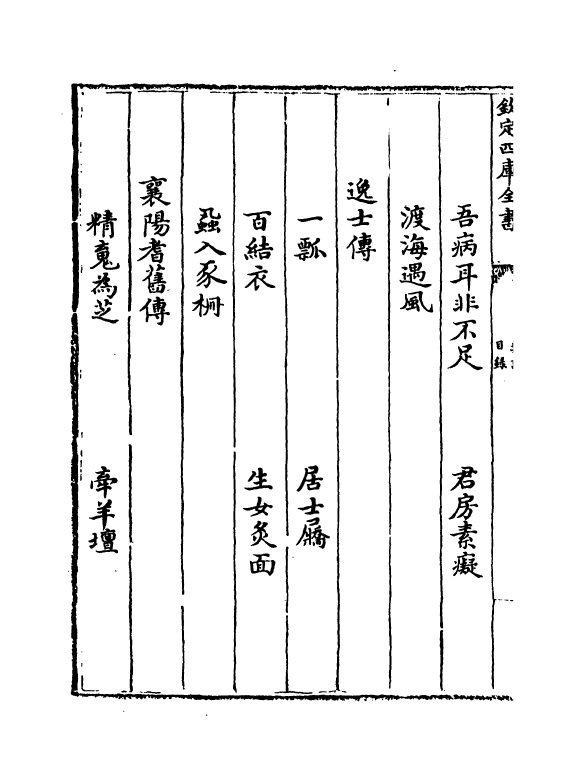 欽定四庫全書
目錄
吾病耳非不足 君房素癡
渡海遇風
逸士傳
一瓢 居士屩
百結衣 生女灸面
蝨入豕柵
襄陽耆舊傳
精䰟為芝 牽羊壇